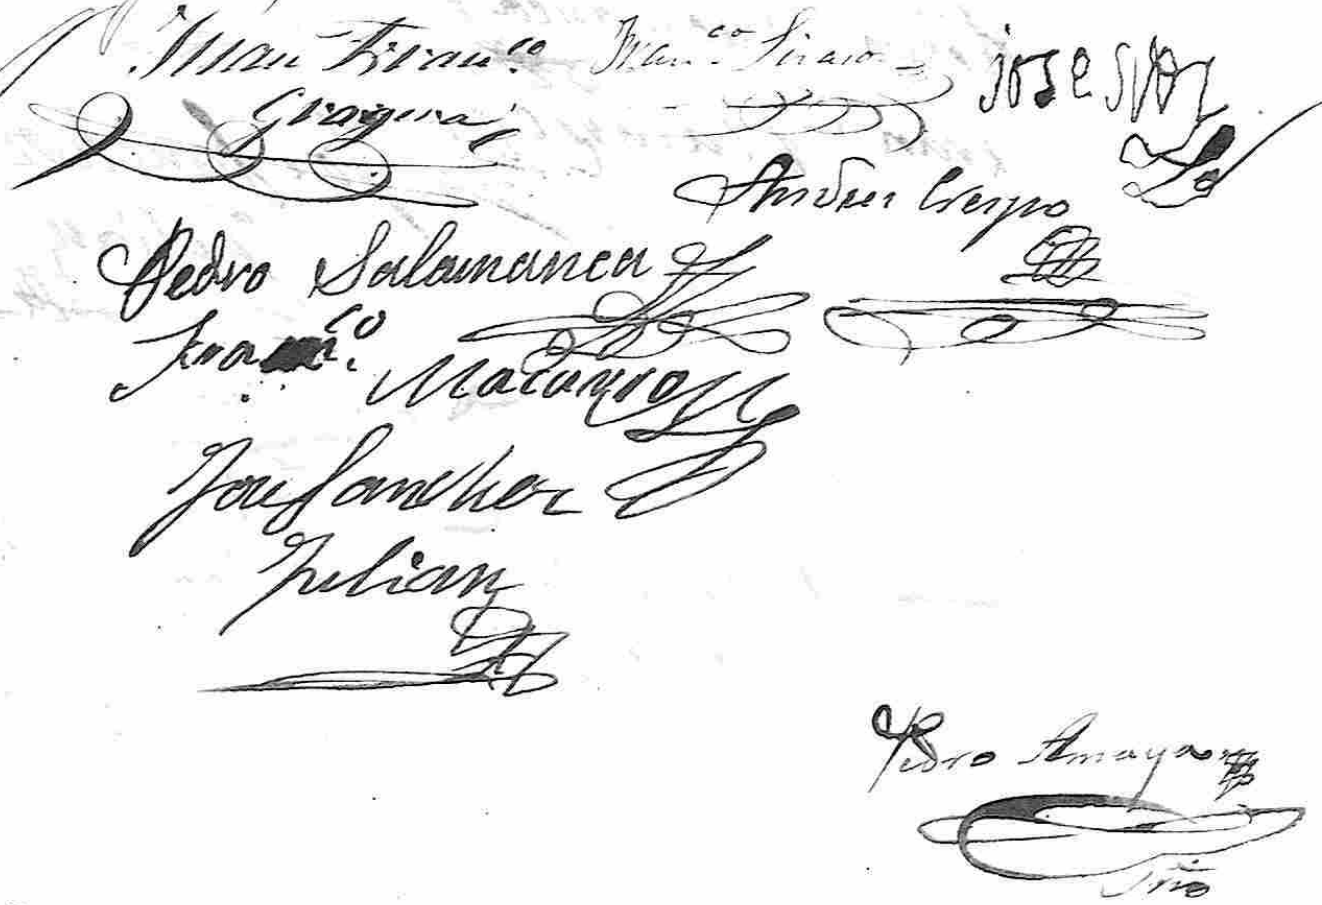 Juan Fran.co Fran.co
Gragera
jose
Andres Crespo
Pedro Salamanca
Fran.co Macarro
Jose Sanchez
Julian
Pedro Amaya
Srio